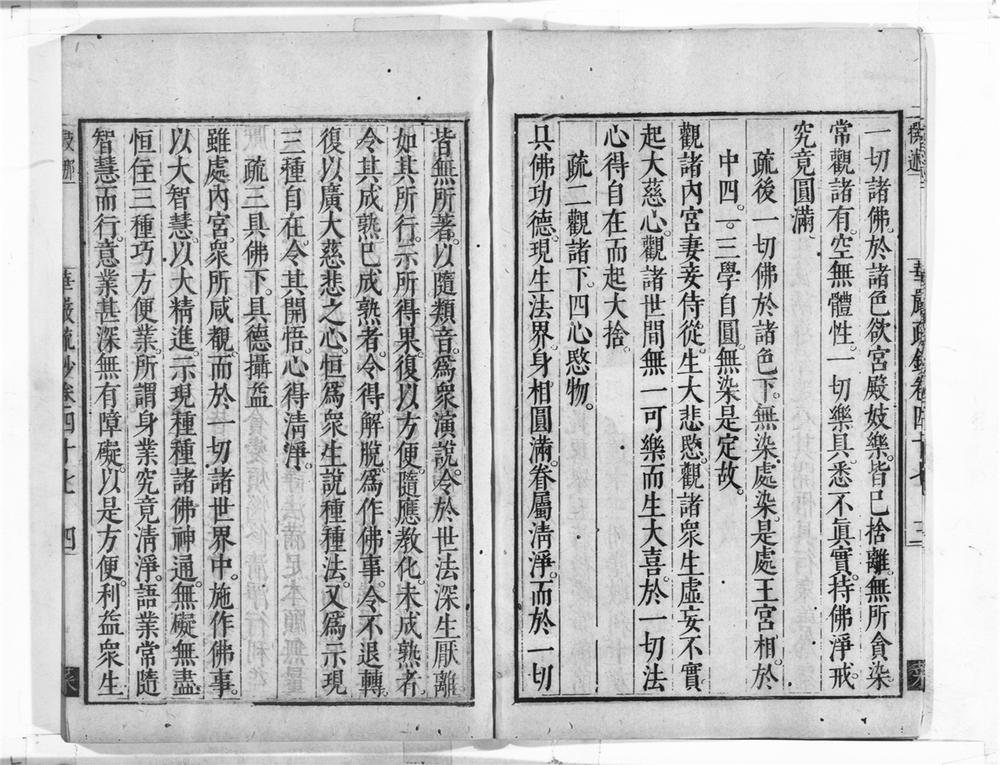 一切諸佛於諸色欲宮殿妓樂。皆已捨離。無所貪染
常觀諸有。空無體性。一切樂具。悉不眞實。持佛淨戒。
究竟圓滿
疏後一切佛於諸色下。無染處染。是處王宮相。於
中四。一。三學自圓。無染是定故。
觀諸內宮妻妾侍從。生大悲愍。觀諸衆生虛妄不實
起大慈心。觀諸世間無一可樂而生大喜。於一切法
心得自在而起大捨。
疏二觀諸下。四心愍物。
具佛功德。現生法界。身相圓滿。眷屬淸淨。而於一切
華嚴疏鈔卷四十七 三
皆無所著。以隨類音。爲衆演說。令於世法深生厭離。
如其所行。示所得果。復以方便。隨應教化。未成熟者。
令其成熟。已成熟者。令得解脫。爲作佛事。令不退轉。
復以廣大慈悲之心。恒爲衆生說種種法。又爲示現
三種自在。令其開悟。心得淸淨。
疏三具佛下。具德攝益
雖處內宮。衆所咸覩。而於一切諸世界中。施作佛事。
以大智慧。以大精進。示現種種諸佛神通。無礙無盡
恒住三種巧方便業。所謂身業究竟淸淨。語業常隨
智慧而行。意業甚深無有障礙。以是方便。利益衆生
華嚴疏鈔卷四十七 四